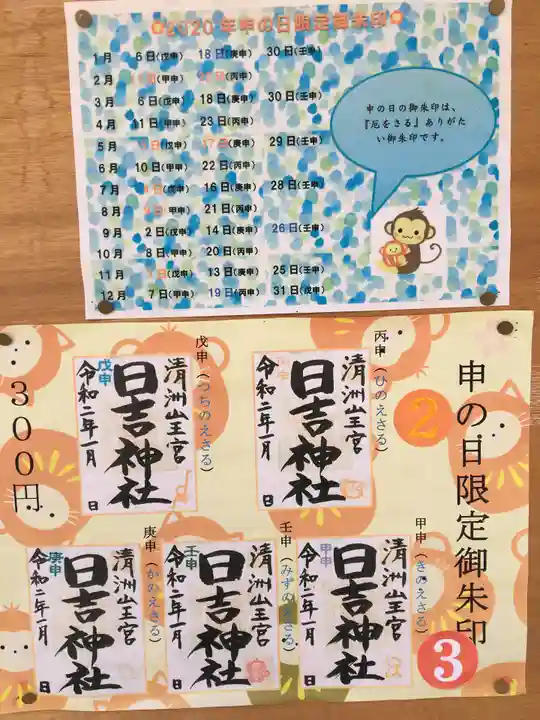 ✿2020年申の日限定御朱印✿
1月 6日(戊申) 18日(庚申) 30日(壬申)
2月 日(甲申) 日(丙申)
3月 6日(戊申) 18日(庚申) 30日(壬申)
4月 11日(甲申) 23日(丙申)
5月 日(戊申) 日(庚申) 29日(壬申)
6月 10日(甲申) 22日(丙申)
7月 日(戊申) 16日(庚申) 28日(壬申)
8月 日(甲申) 21日(丙申)
9月 2日(戊申) 14日(庚申) 26日(壬申)
10月 8日(甲申) 20日(丙申)
11月 日(戊申) 13日(庚申) 25日(壬申)
12月 7日(甲申) 19日(丙申) 31日(戊申)
申の日の御朱印は、
『厄をさる』ありがた
い御朱印です。
申の日限定御朱印
②
③
丙申(ひのえさる)
清洲山王宮
日吉神社
丙申
令和二年一月 日
戊申(つちのえさる)
清洲山王宮
日吉神社
戊申
令和二年一月 日
300円
甲申(きのえさる)
清洲山王宮
日吉神社
甲申
令和二年一月 日
壬申(みずのえさる)
清洲山王宮
日吉神社
壬申
令和二年一月 日
庚申(かのえさる)
清洲山王宮
日吉神社
庚申
令和二年一月 日